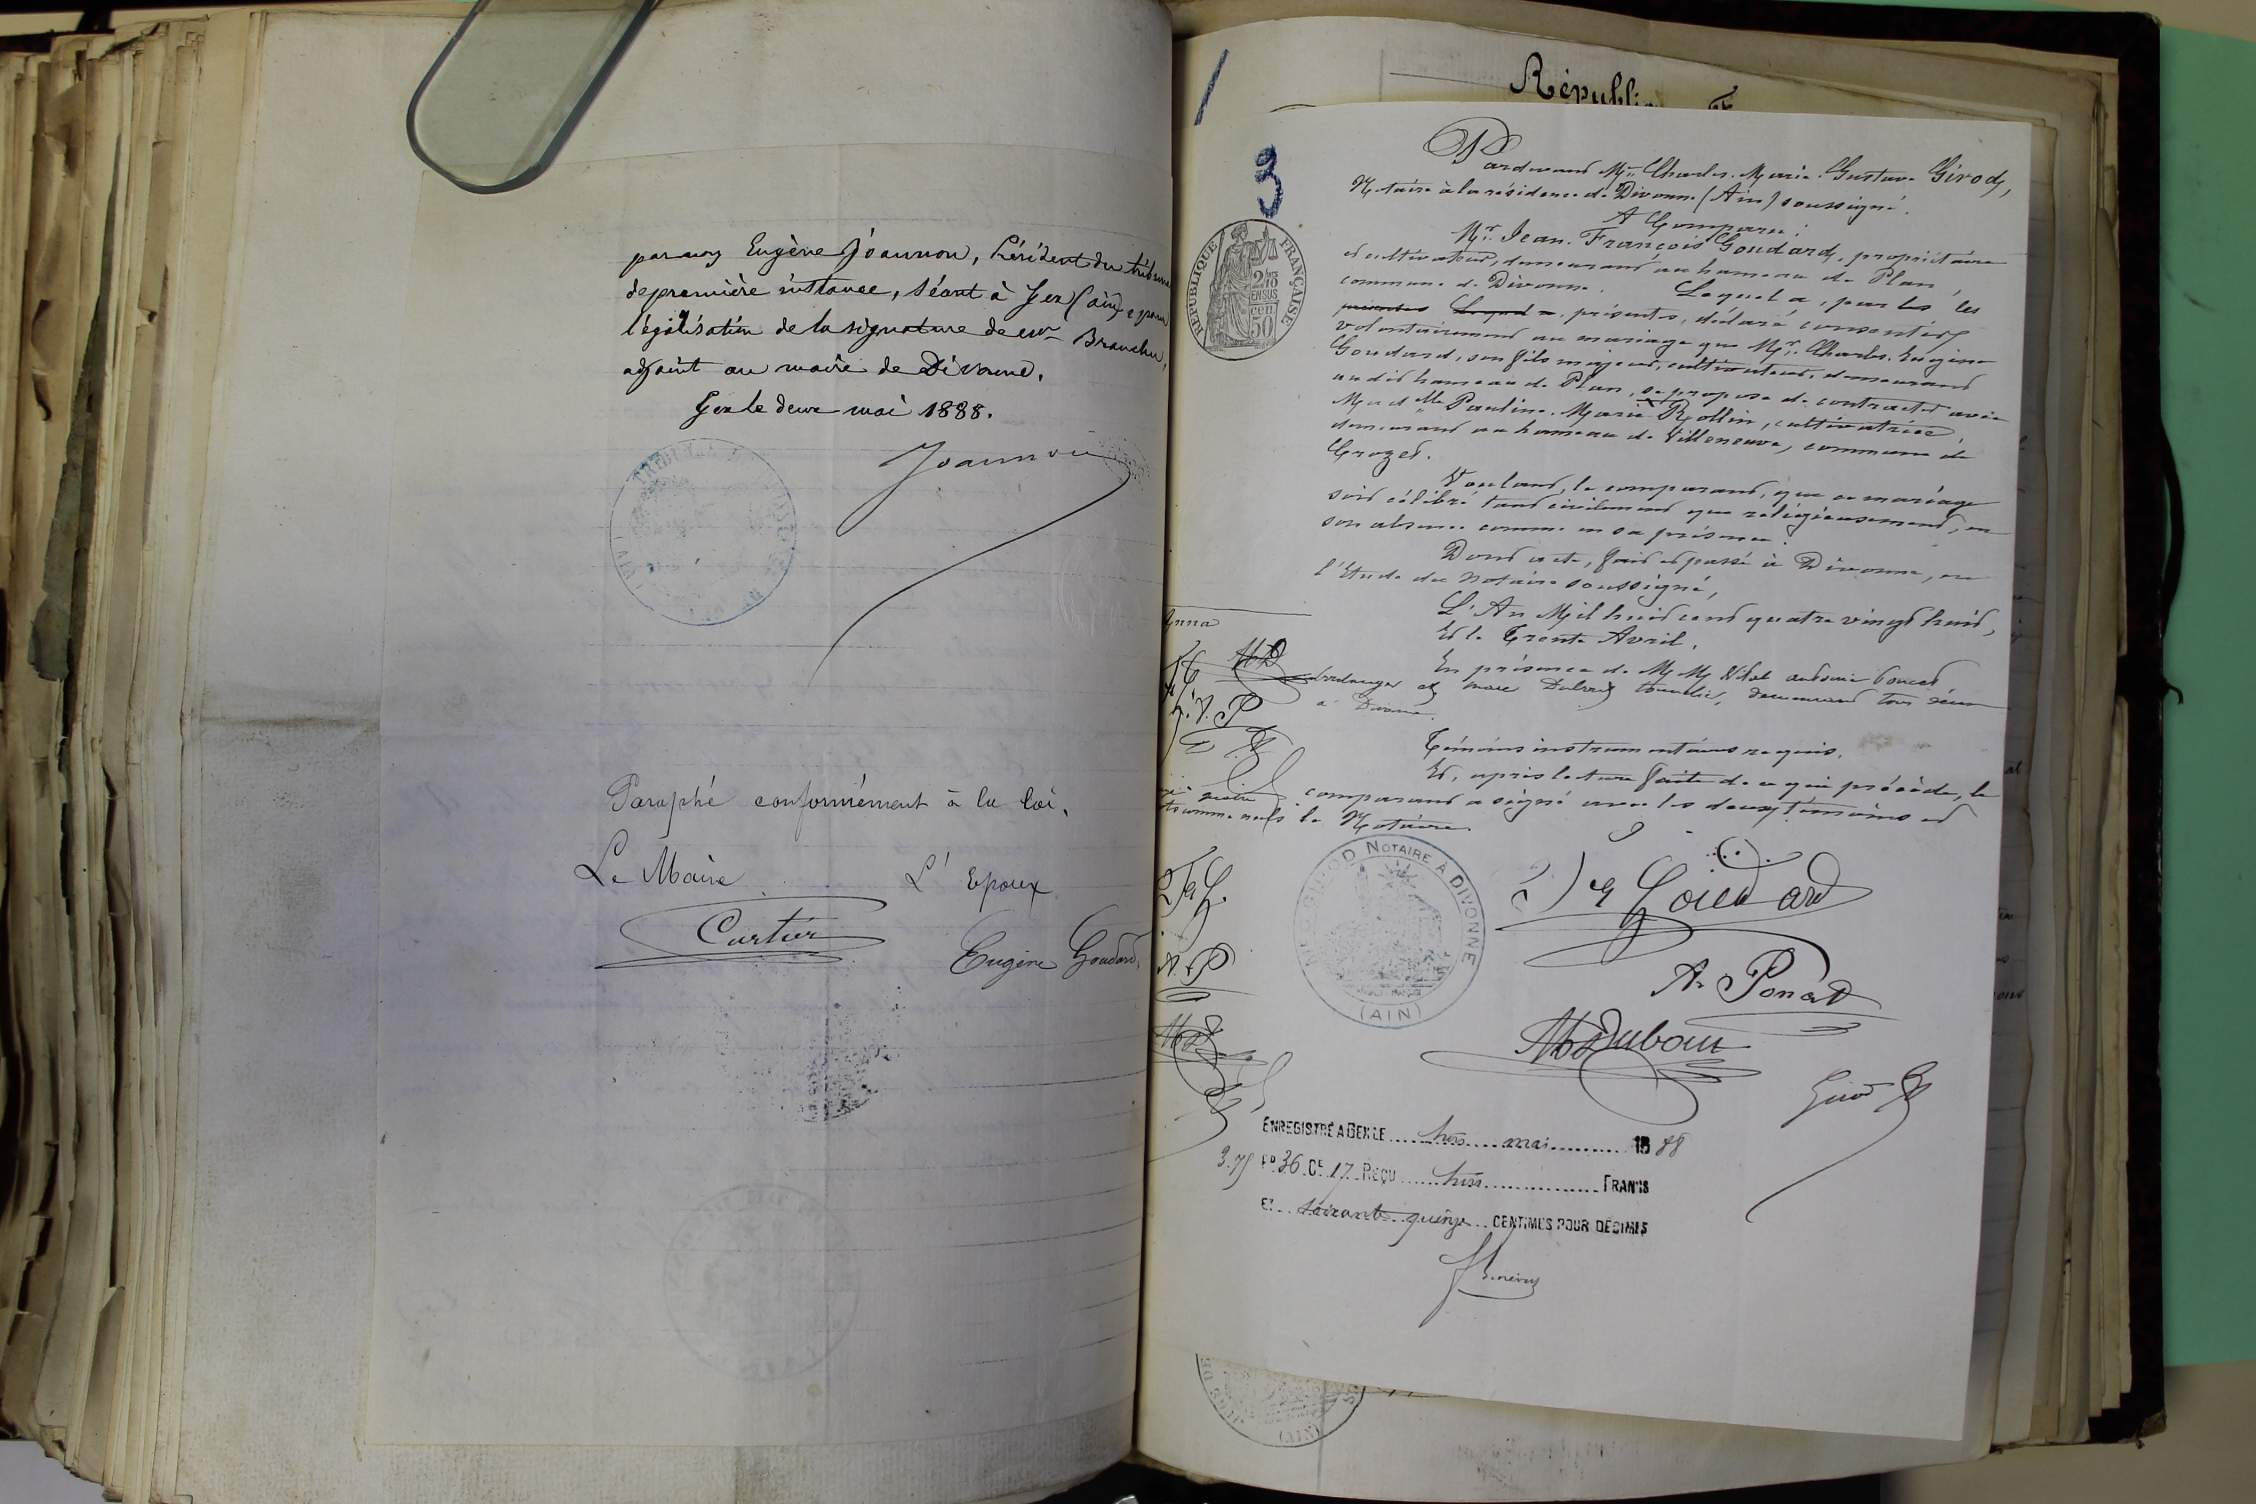 par nous Eugène Joannon, Président du tribunal
de première instance, séant à Gex (ain), pour
légalisation de la signature de Mr Branchu,
adjoint au maire de Divonne.
Gex le deux mai 1888.
Joannon
Paraphé conformément à la loi.
Le Maire L'Epoux
Cartier
Eugène Goudard
1
Républi
3
RÉPUBLIQUE FRANÇAISE
2/10
EN SUS
50 cen
Pardevant Me Charles Marie Gustave Girod,
Notaire à la résidence de Divonne (Ain) soussigné.
A Comparu:
Mr Jean François Goudard, propriétaire
et cultivateur, demeurant au hameau de Plan,
commune de Divonne. Lequel a, par les
présentes, déclaré consentir
volontairement au mariage que Mr Charles Eugène
Goudard, son fils majeur, cultivateur, demeurant
au dit hameau de Plan, se propose de contracter avec
Madelle Pauline Marie Rollin, cultivatrice,
demeurant au hameau de Villeneuve, commune de
Crozet.
Voulant, le comparant, que ce mariage
soit célébré tant civilement que religieusement, en
son absence comme en sa présence.
Dont acte, fait et passé à Divonne, en
l'Etude du Notaire soussigné,
L'An Mil huit cent quatre vingt huit,
Et le Trente Avril.
En présence de MM
boulanger et Marc demeurant tous deux
à Divonne.
Témoins instrumentaires requis.
Et, après lecture faite de ce qui précède, le
comparant a signé avec les deux témoins et
le Notaire.
NOTAIRE À DIVONNE
(AIN)
Goudard
A. Ponet
Dubout
Girod
ENREGISTRÉ A GEX LE trois mai 1888
3.75 Fo 36 Ce 17 REÇU trois FRANCS
ET soixante quinze CENTIMES POUR DÉCIMES
(AIN)